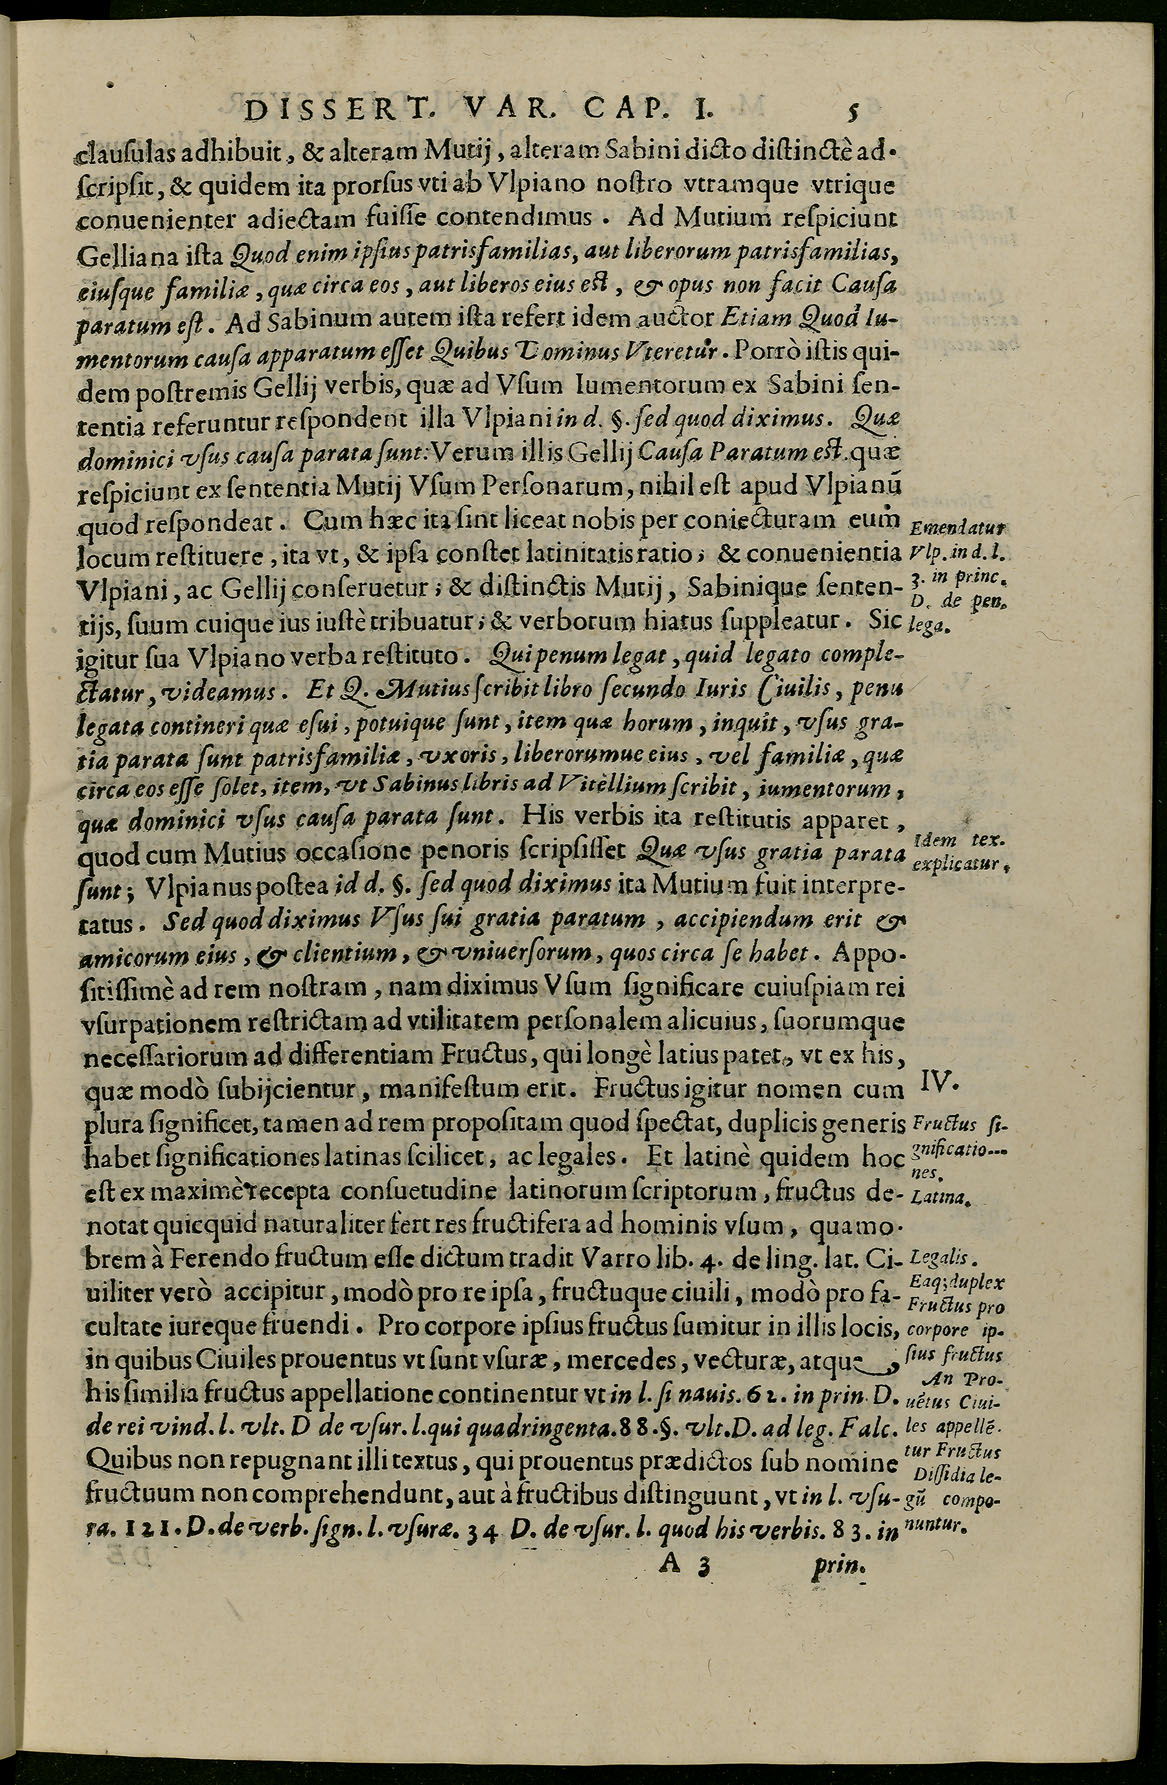 DISSERT. VAR. CAP. I. 5
clauſulas adhibuit, & alteram Mutij, alteram Sabini dicto diſtinctè ad-
ſcripſit, & quidem ita prorſus vti ab Vlpiano noſtro vtramque vtrique
conuenienter adiectam fuiſſe contendimus. Ad Mutium reſpiciunt
Gelliana iſta Quod enim ipſius patrisfamilias, aut liberorum patrisfamilias,
eiuſque familiæ, quæ circa eos, aut liberos eius eſt, & opus non facit Cauſa
paratum eſt. Ad Sabinum autem iſta refert idem auctor Etiam Quod Iu-
mentorum cauſa apparatum eſſet Quibus Dominus Vteretur. Porrò iſtis qui-
dem poſtremis Gellij verbis, quæ ad Vſum Iumentorum ex Sabini ſen-
tentia referuntur reſpondent illa Vlpiani in d. §. ſed quod diximus. Quæ
dominici vſus cauſa parata ſunt: Verum illis Gellij Cauſa Paratum eſt. quæ
reſpiciunt ex ſententia Mutij Vſum Perſonarum, nihil eſt apud Vlpianũ
quod reſpondeat. Cum hæc ita ſint liceat nobis per coniecturam eum
locum reſtituere, ita vt, & ipſa conſtet latinitatis ratio; & conuenientia
Vlpiani, ac Gellij conſeruetur; & diſtinctis Mutij, Sabinique ſenten-
tijs, ſuum cuique ius iuſtè tribuatur; & verborum hiatus ſuppleatur. Sic
igitur ſua Vlpiano verba reſtituto. Qui penum legat, quid legato comple-
ctatur, videamus. Et Q. Mutius ſcribit libro ſecundo Iuris Ciuilis, penu
legata contineri quæ eſui, potuique ſunt, item quæ horum, inquit, vſus gra-
tia parata ſunt patrisfamiliæ, vxoris, liberorumue eius, vel familiæ, quæ
circa eos eſſe ſolet, item, vt Sabinus libris ad Vitellium ſcribit, iumentorum,
quæ dominici vſus cauſa parata ſunt. His verbis ita reſtitutis apparet,
quod cum Mutius occaſione penoris ſcripſiſſet Quæ vſus gratia parata
ſunt; Vlpianus poſtea id d. §. ſed quod diximus ita Mutium fuit interpre-
tatus. Sed quod diximus Vſus ſui gratia paratum, accipiendum erit &
amicorum eius, & clientium, & vniuerſorum, quos circa ſe habet. Appo-
ſitiſſimè ad rem noſtram, nam diximus Vſum ſignificare cuiuſpiam rei
vſurpationem reſtrictam ad vtilitatem perſonalem alicuius, ſuorumque
neceſſariorum ad differentiam Fructus, qui longè latius patet, vt ex his,
quæ modò ſubijcientur, manifeſtum erit. Fructus igitur nomen cum
plura ſignificet, tamen ad rem propoſitam quod ſpectat, duplicis generis
habet ſignificationes latinas ſcilicet, ac legales. Et latinè quidem hoc
eſt ex maximè recepta conſuetudine latinorum ſcriptorum, fructus de-
notat quicquid naturaliter fert res fructifera ad hominis vſum, quamo-
brem à Ferendo fructum eſſe dictum tradit Varro lib. 4. de ling. lat. Ci-
uiliter verò accipitur, modò pro re ipſa, fructuque ciuili, modò pro fa-
cultate iureque fruendi. Pro corpore ipſius fructus ſumitur in illis locis,
in quibus Ciuiles prouentus vt ſunt vſuræ, mercedes, vecturæ, atque,
his ſimilia fructus appellatione continentur vt in l. ſi nauis. 62. in prin. D.
de rei vind. l. vlt. D de vſur. l. qui quadringenta. 88. §. vlt. D. ad leg. Falc.
Quibus non repugnant illi textus, qui prouentus prædictos ſub nomine
fructuum non comprehendunt, aut à fructibus diſtinguunt, vt in l. vſu-
ra. 121. D. de verb. ſign. l. vſuræ. 34 D. de vſur. l. quod his verbis. 83. in
A 3 prin.
Emendatur
Vlp. in d. l.
3. in princ.
D. de pen.
lega.
Idem tex.
explicatur.
IV.
Fructus ſi-
gnificatio-
nes.
Latina.
Legalis.
Eaq; duplex
Fructus pro
corpore ip-
ſius fructus
An Pro-
uẽtus Ciui-
les appellẽ-
tur Fructus
Diſſidia le-
gũ compo-
nuntur.